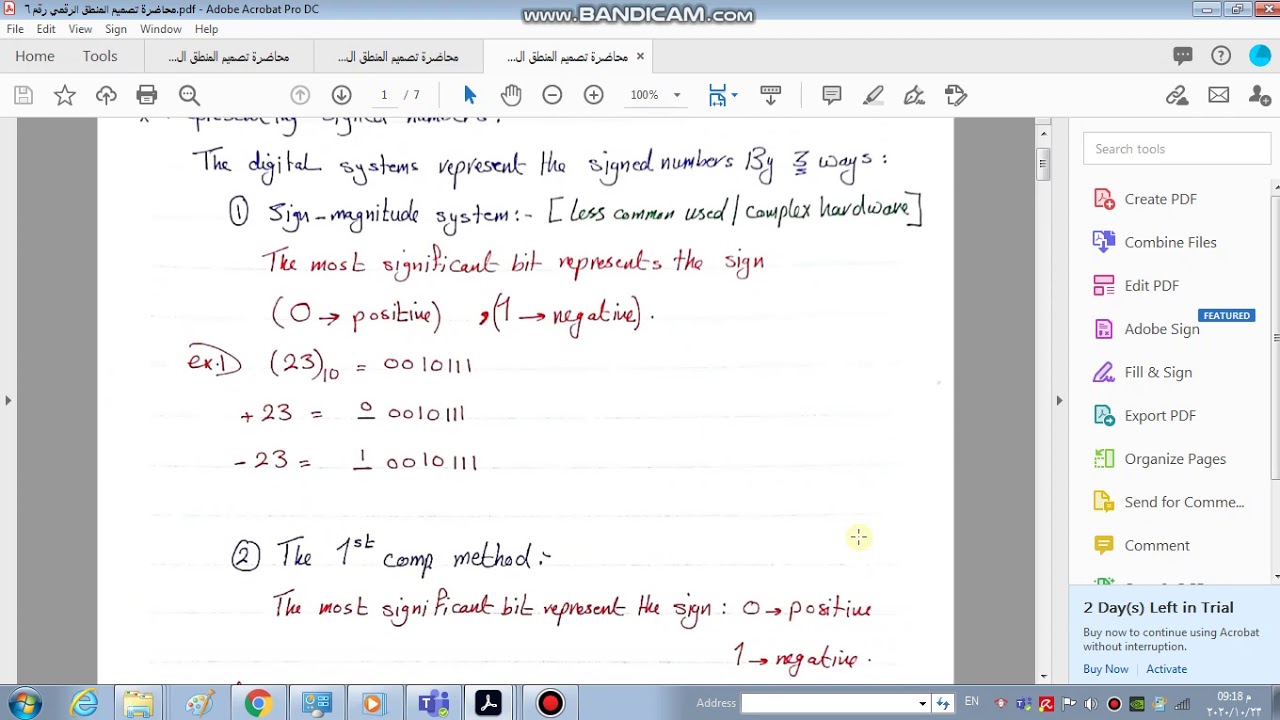 محاضرة تصميم المنطق الرقمي رقم ٦.pdf - Adobe Acrobat Pro DC
www.BANDICAM.com
File Edit View Sign Window Help
Home Tools
محاضرة تصميم المنطق ال...
محاضرة تصميم المنطق ال...
محاضرة تصميم المنطق ال... ×
1 / 7
100%
The digital systems represent the signed numbers By 3 ways:
① Sign-magnitude system:- [less common used / complex hardware]
The most significant bit represents the sign
(0 → positive) , (1 → negative).
ex.1) (23)10 = 0010111
+23 = 0 0010111
-23 = 1 0010111
② The 1st comp method:-
The most significant bit represent the sign: 0 → positive
1 → negative.
Search tools
Create PDF
Combine Files
Edit PDF
FEATURED
Adobe Sign
Fill & Sign
Export PDF
Organize Pages
Send for Comme...
Comment
2 Day(s) Left in Trial
Buy now to continue using Acrobat
without interruption.
Buy Now Activate
Address
EN
09:18 م
٢٠٢٠/١٠/٢٣